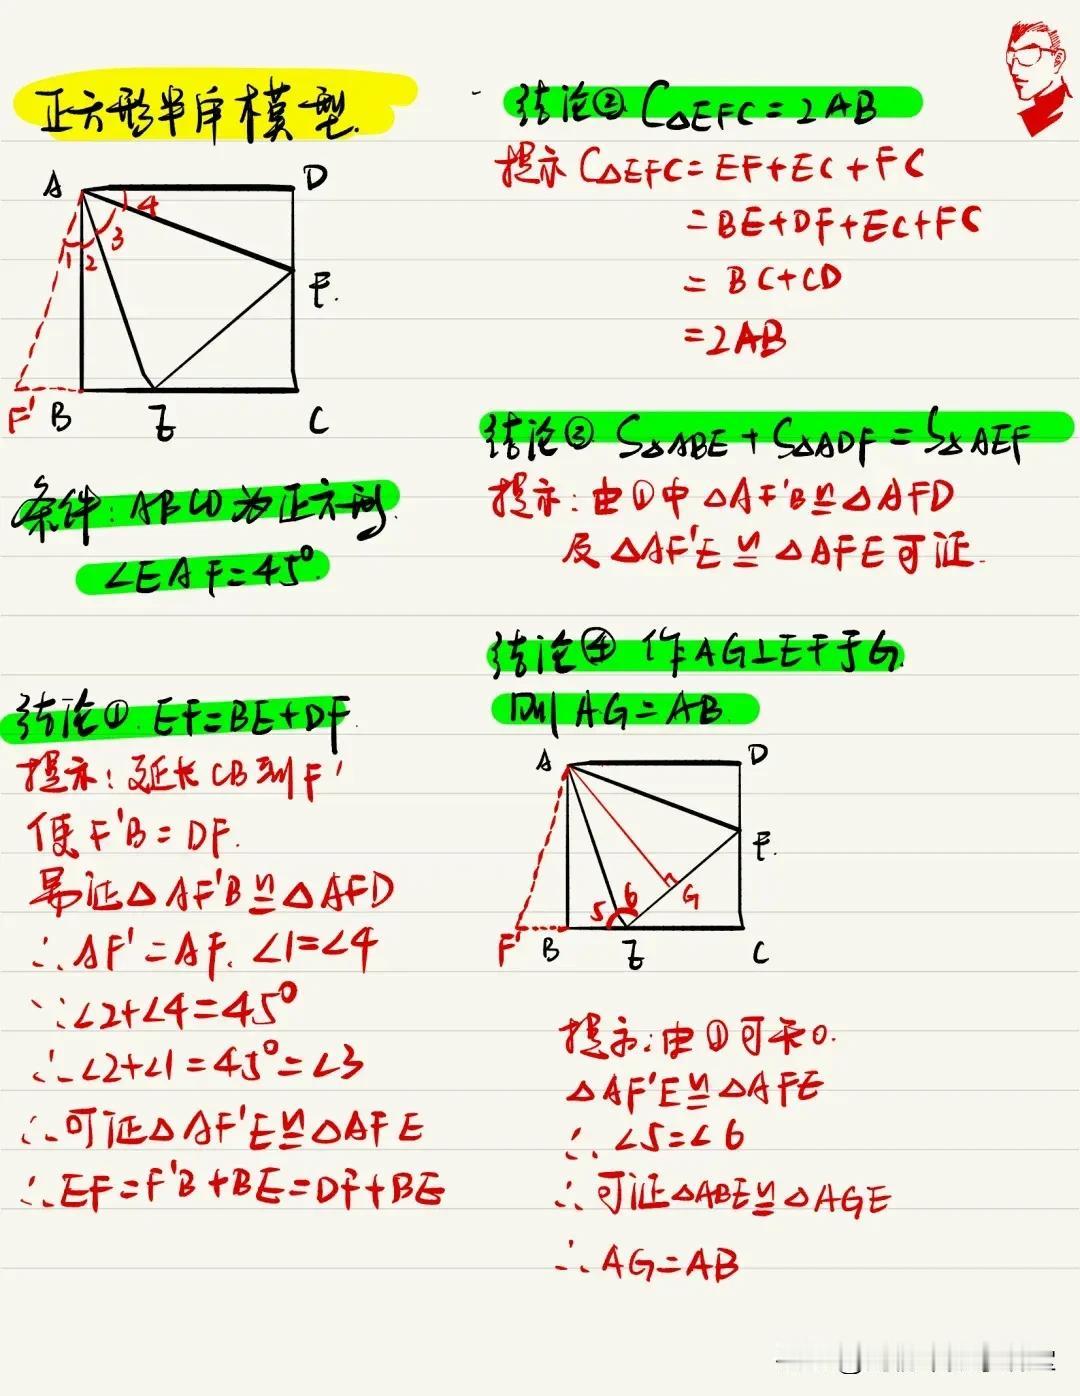 正方形半角模型.
A
D
4
3
1
2
F.
F'
B
E
C
条件: ABCD为正方形.
∠EAF=45°.
结论① EF=BE+DF.
提示: 延长CB到F'
使F'B=DF.
易证△AF'B≌△AFD
∴AF'=AF. ∠1=∠4
∵∠2+∠4=45°
∴∠2+∠1=45°=∠3
∴可证△AF'E≌△AFE
∴EF=F'B+BE=DF+BE
结论② C△EFC=2AB
提示 C△EFC=EF+EC+FC
=BE+DF+EC+FC
=BC+CD
=2AB
结论③ S△ABE+S△ADF=S△AEF
提示: 由①中△AF'B≌△AFD
及△AF'E≌△AFE可证.
结论④ 作AG⊥EF于G.
则AG=AB.
A
D
F.
5
6
G
F'
B
E
C
提示: 由①可知.
△AF'E≌△AFE
∴∠5=∠6
∴可证△ABE≌△AGE
∴AG=AB